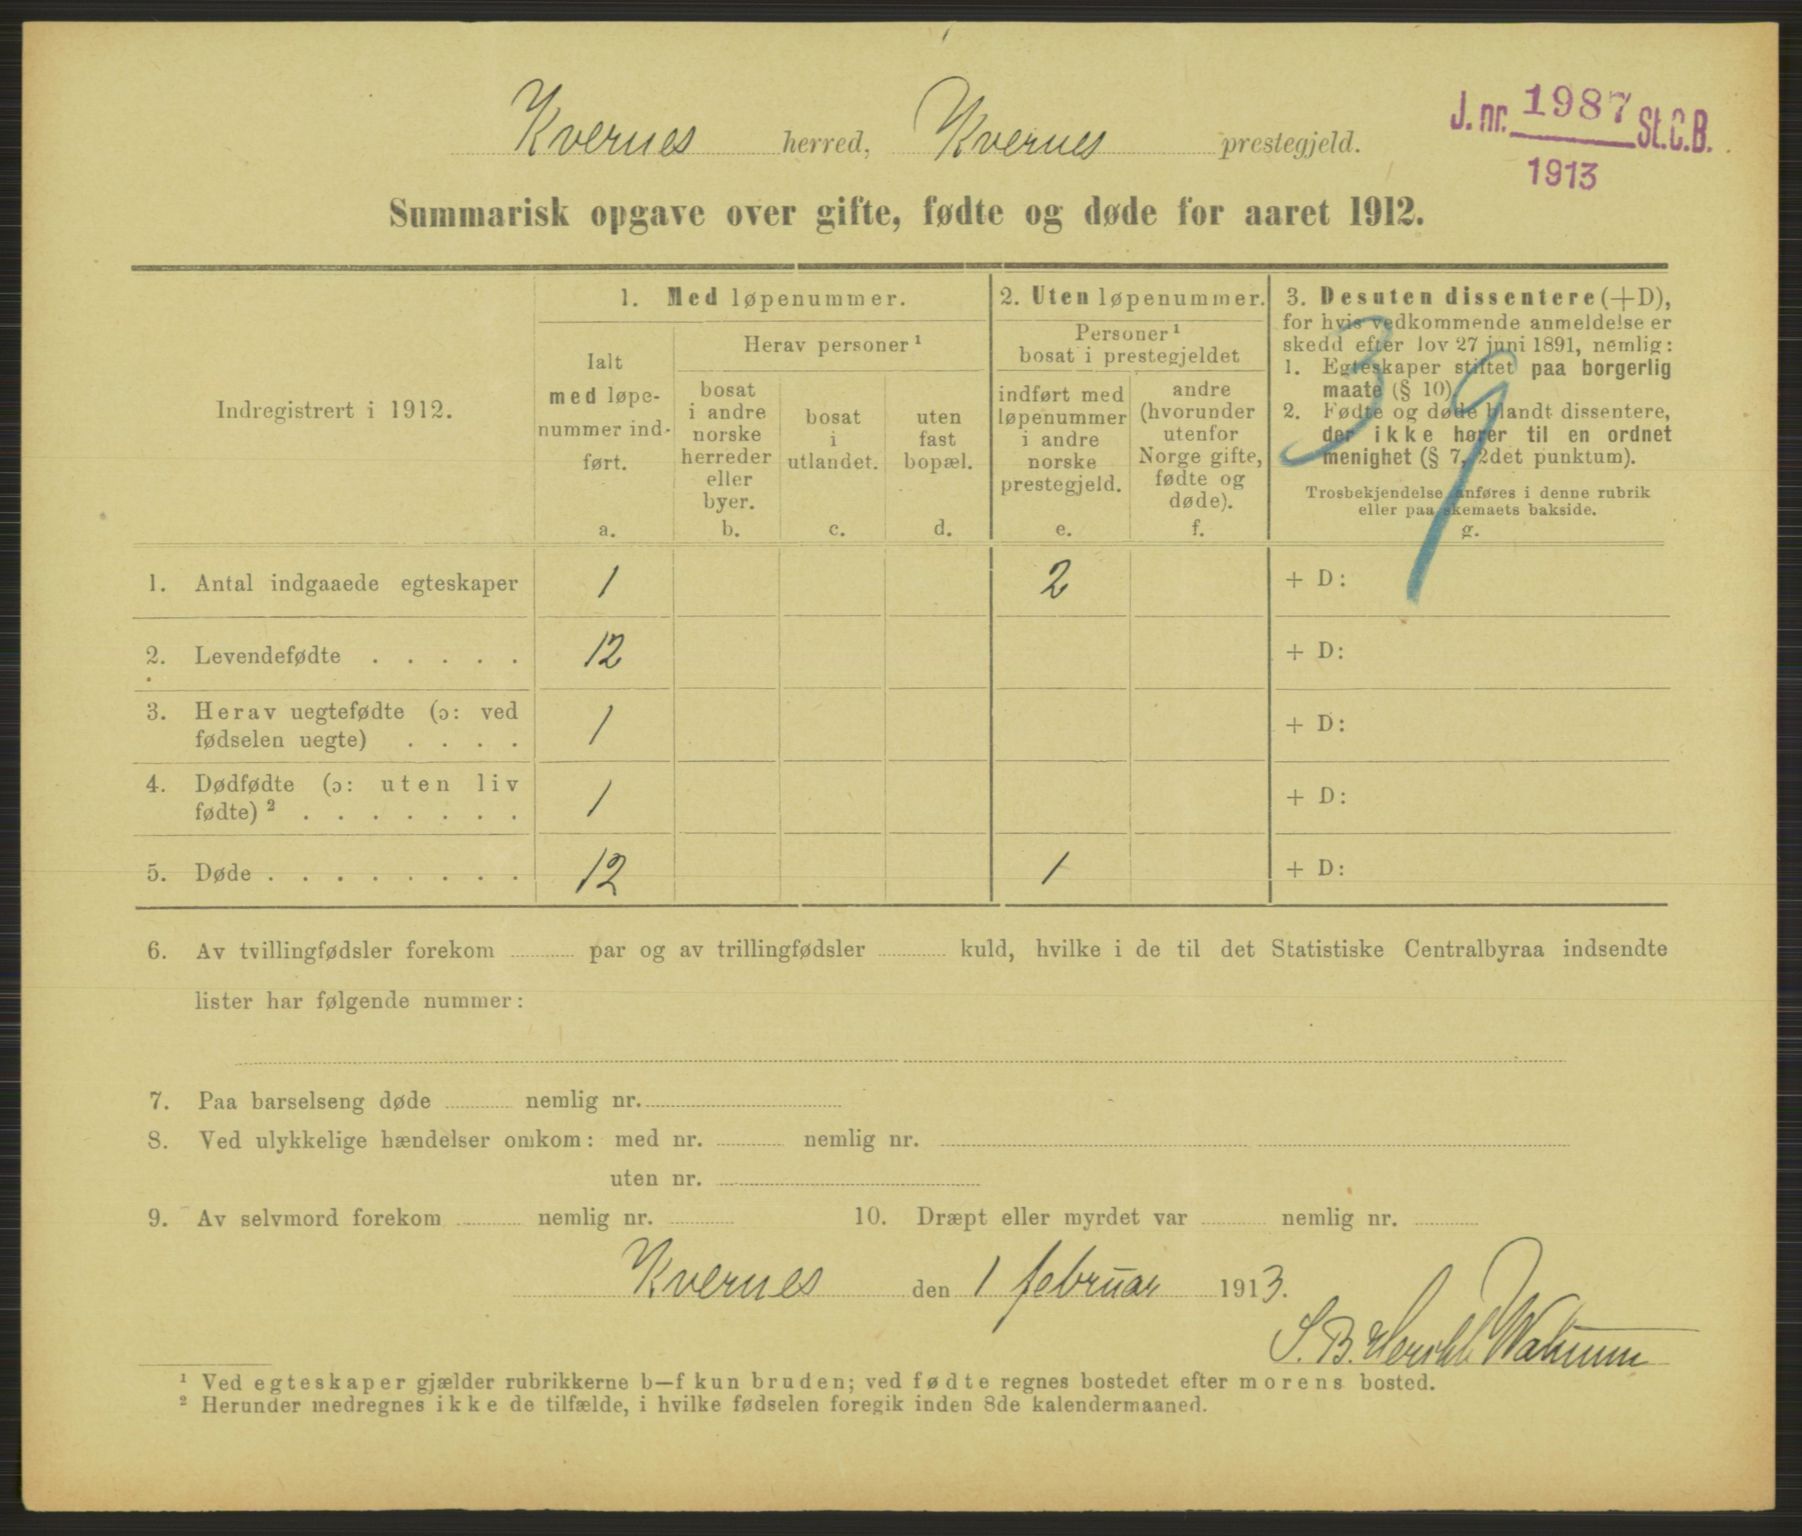 Kvernes herred, Kvernes prestegjeld.
J. nr. 1987 St.C.B.
1913
Summarisk opgave over gifte, fødte og døde for aaret 1912.
Indregistrert i 1912.
1. Med løpenummer.
Ialt
med løpe-
nummer ind-
ført.
a.
Herav personer ¹
bosat
i andre
norske
herreder
eller
byer.
b.
bosat
i
utlandet.
c.
uten
fast
bopæl.
d.
2. Uten løpenummer.
Personer ¹
bosat i prestegjeldet
indført med
løpenummer
i andre
norske
prestegjeld.
e.
andre
(hvorunder
utenfor
Norge gifte,
fødte og
døde).
f.
3. Desuten dissentere (+D),
for hvis vedkommende anmeldelse er
skedd efter lov 27 juni 1891, nemlig:
1. Egteskaper stiftet paa borgerlig
maate (§ 10)
2. Fødte og døde blandt dissentere,
der ikke hører til en ordnet
menighet (§ 7, 2det punktum).
Trosbekjendelse anføres i denne rubrik
eller paa skemaets bakside.
g.
39
1. Antal indgaaede egteskaper 1 2 + D:
2. Levendefødte . . . . . 12 + D:
3. Herav uegtefødte (ɔ: ved
fødselen uegte) . . . . 1 + D:
4. Dødfødte (ɔ: uten liv
fødte) ² . . . . . . . 1 + D:
5. Døde . . . . . . . . 12 1 + D:
6. Av tvillingfødsler forekom par og av trillingfødsler kuld, hvilke i de til det Statistiske Centralbyraa indsendte
lister har følgende nummer:
7. Paa barselseng døde nemlig nr.
8. Ved ulykkelige hændelser omkom: med nr. nemlig nr.
uten nr.
9. Av selvmord forekom nemlig nr. 10. Dræpt eller myrdet var nemlig nr.
Kvernes den 1 februar 1913.
S. B.
¹ Ved egteskaper gjælder rubrikkerne b—f kun bruden; ved fødte regnes bostedet efter morens bosted.
² Herunder medregnes ikke de tilfælde, i hvilke fødselen foregik inden 8de kalendermaaned.